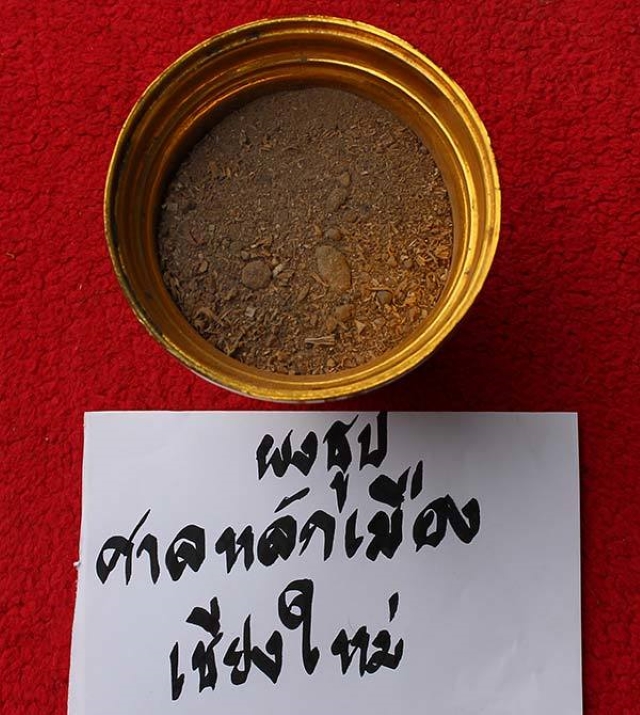 ผงธูป
ศาลหลักเมือง
เชียงใหม่